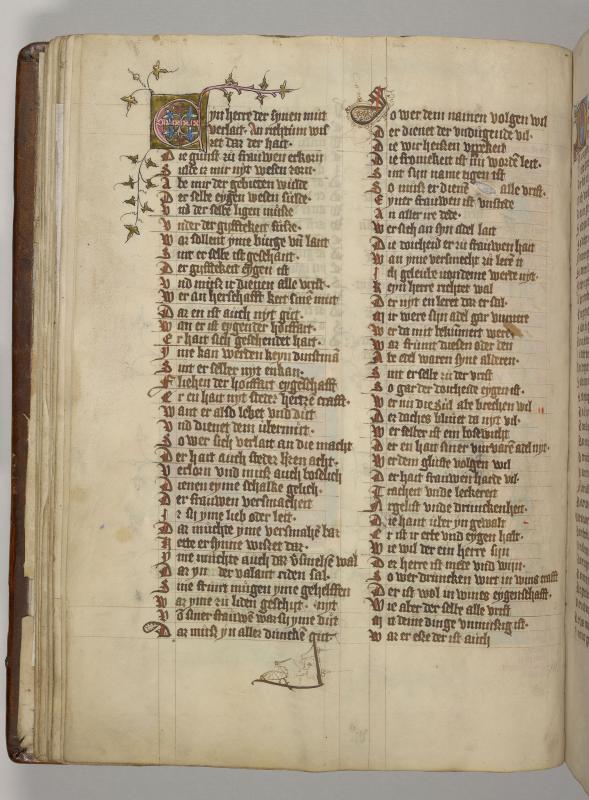 Eyn herre der synen mut
verlait An richtum wil
ret dar der hait
Die gunst zu frauwen erkorn
Sulde is mir nyt wesen zorn
Abe mir der gebieten wulde
Der selbe eygen wesen sulde
Und der selbe ligen muste
Under der gyfftekeit fuste
War sollent yme burge vn lant
Sint er selbe ist geschant
Der gyfftekeit eygen ist
Und muß ir dienen alle vrist
Wer an herschafft kert sine mut
Daz en ist auch nyt gut
Wan er ist eygen der hoiffart
Er hait sich geschendet hart
Yme kan werden keyn
Sint er selber nyt enkan
Fliehen der hoiffart eygelschafft
Er en hait nyt steder hertze crafft
Want er also lebet vnd dut
Vnd dienet dem ubermut
So wer sich verlait an die macht
Der hait auch steder
Verlorn vnd muß auch boslich
Dienen eyme schalke gelich
Der frauwen versmachert
Ir sy yme lieb oder leit
Daz muchte yme versmahe baz
Hette er synne wistet daz
Yme muchte auch daz wal
Daz yn der valant riden sal
Sine frunt mugen yme gehelffen
Waz yme zu liden geschyt nyt
siner frauwe war sy yme dut
Daz muß yn alles duncke gut
So wer dem namen volgen wil
Der dienet der vndugende vil
Die wir heißen
Die fromekeit ist im worde leit
Sint syn name eigen ist
So muß er diene alle vrist
Eyner frauwen ist vnstede
An aller ire dede
Wer sich an syn adel lait
Die dorheid er zu frauwen hait
Wan yme versmecht zu lere it
Ich geleube werde nyt
Keyn herre richtet wal
Der nyt en leret daz er sal
Mir were syn adel gar vnmere
Wer da mit bekumert were
War frunt dielen oder den
Abe edel waren syne alderen
Sint er selbe zu der vrist
So gar der dorheide eygen ist
Wer nu die zil abe brechen wil
Der daches blulet da nyt vil
Wer selber ist ein bosewicht
Der en hait siner vurvare adel nyt
Wer dem gluste volgen wil
Der hait frauwen harde vil
Tracheit vnde leckereit
Argelist vnde drunckenheit
Die haut uber yn gewalt
Er ist ir erbe vnd eygen halt
Wie wil der ein herre sin
Der herre ist mese vnd win
So wer druncken wirt in wins crafft
Der ist wol in wines eygenschafft
Wie aber der selbe alle vrist
Mit deme dinge vnmußig ist
War er esse der ist auch